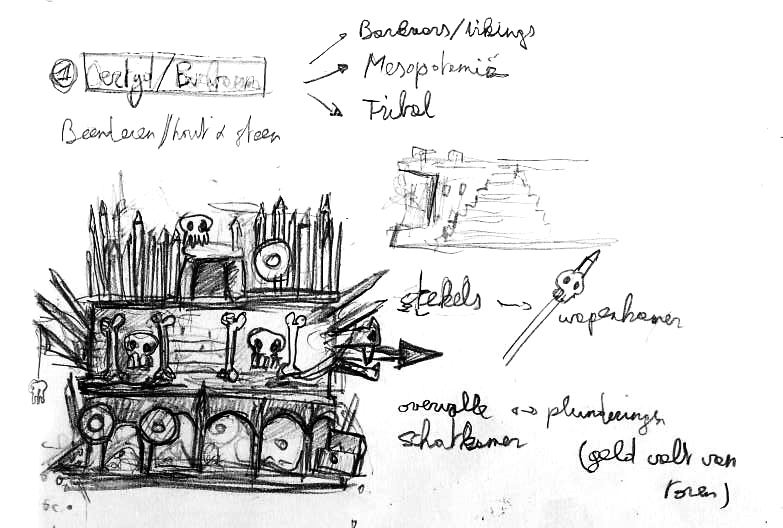 1 Oertijd/Barbaren
Barbaars/vikings
Mesopotamië
Tribal
Beenderen/hout & steen
stekels → wapenkamer
overvolle ↔ plunderingen
schatkamer
(geld valt van
toren)